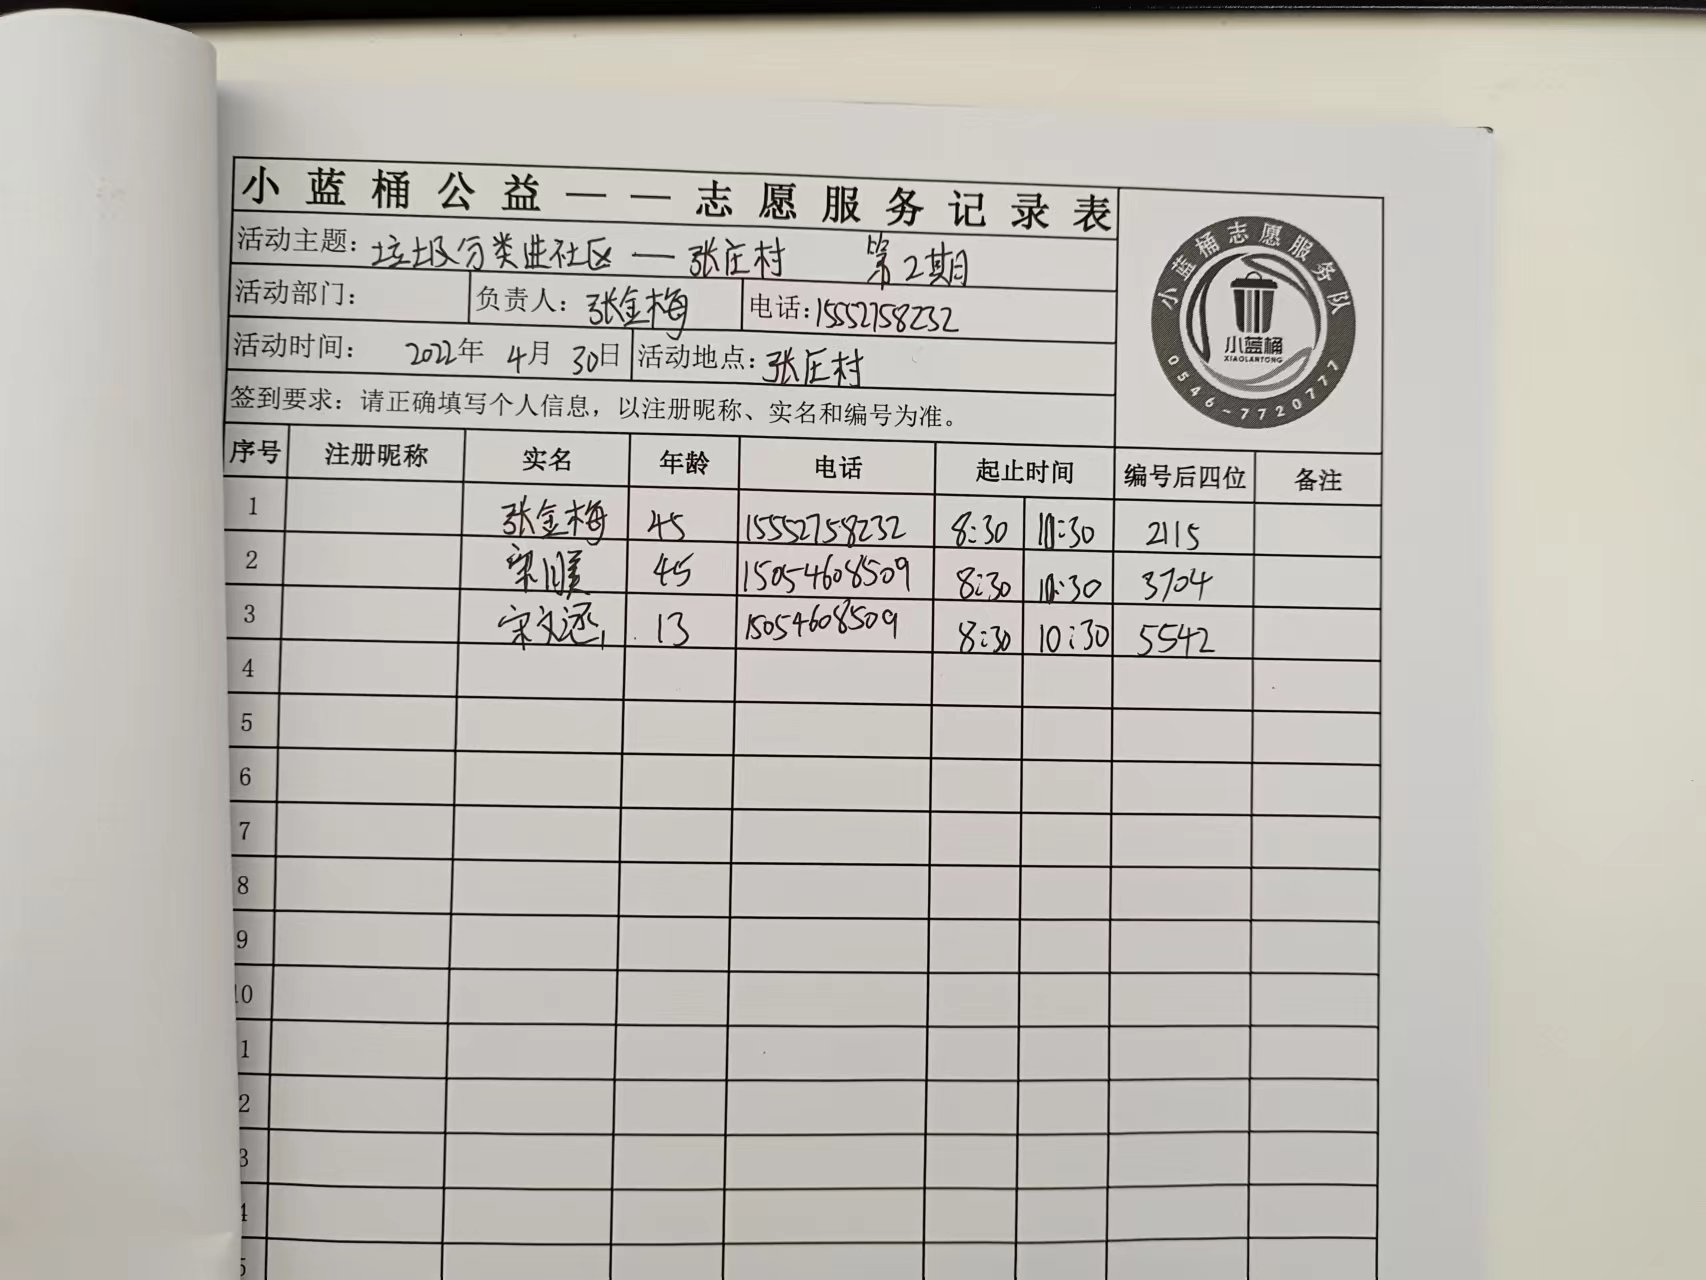 小蓝桶公益——志愿服务记录表
小蓝桶志愿服务队
小蓝桶
XIAOLANTONG
0546-7720777
活动主题：垃圾分类进社区 — 张庄村 第2期
活动部门： 负责人：张金梅 电话：15552758232
活动时间： 2022年 4月 30日 活动地点：张庄村
签到要求：请正确填写个人信息，以注册昵称、实名和编号为准。
序号 注册昵称 实名 年龄 电话 起止时间 编号后四位 备注
1 张金梅 45 15552758232 8:30 10:30 2115
2 45 15054608509 8:30 10:30 3704
3 宋文 13 15054608509 8:30 10:30 5542
4
5
6
7
8
9
10
1
2
3
4
5